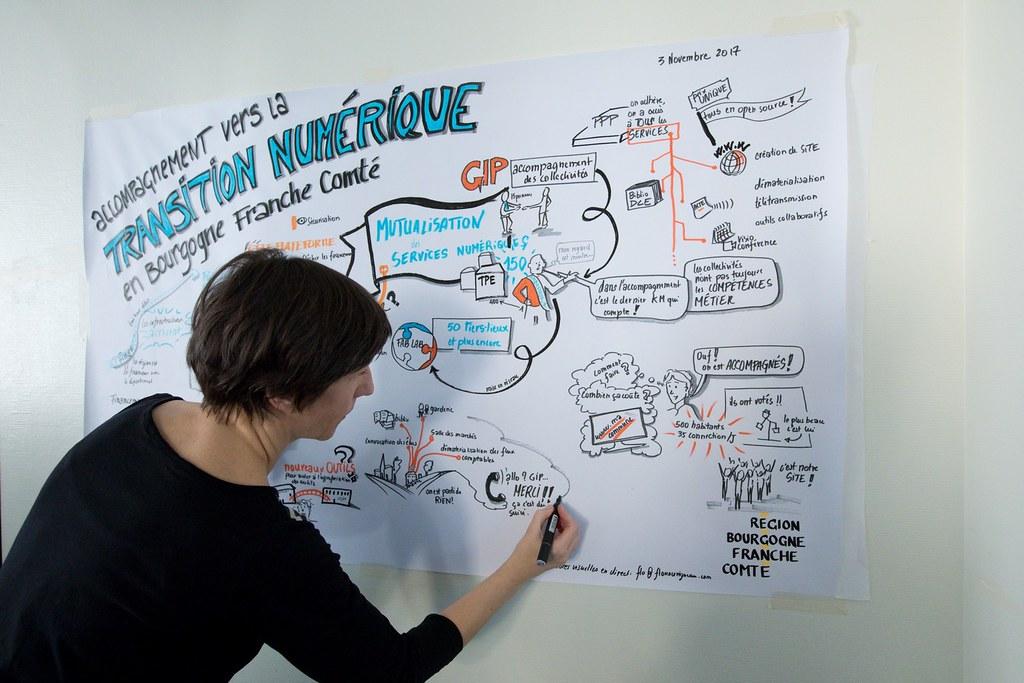 3 Novembre 2017
accompagnement vers la
TRANSITION NUMÉRIQUE
en Bourgogne Franche Comté
GIP
accompagnement
des collectivités
MUTUALISATION
des
SERVICES NUMÉRIQUES
150
TPE
FAB LAB
50 tiers-lieux
et plus encore
mise en réseau
PPP
on adhère,
on a accès
à TOUS les
SERVICES
PRIX
UNIQUE
tous en open source !
W.W.W
création de SITE
Biblio
DCE
ACTE
dématérialisation
télétransmission
outils collaboratifs
Visio
conférence
dans l'accompagnement
c'est le dernier KM qui
compte !
les collectivités
n'ont pas toujours
les COMPÉTENCES
MÉTIER
Comment
faire ?
Combien ça coûte ?
www.ma
commune
Ouf !
on est ACCOMPAGNÉS !
500 habitants
35 connection/j
ils ont votés !!
le plus beau
c'est lui
c'est notre
SITE !
nouveaux OUTILS
Biblio
garderie
convocation des élus
Salle des marchés
dématérialisation des flux
comptables
on est parti de
RIEN !
allo ? GIP...
MERCI !!
ça c'est du
suivi.
REGION
BOURGOGNE
FRANCHE
COMTE